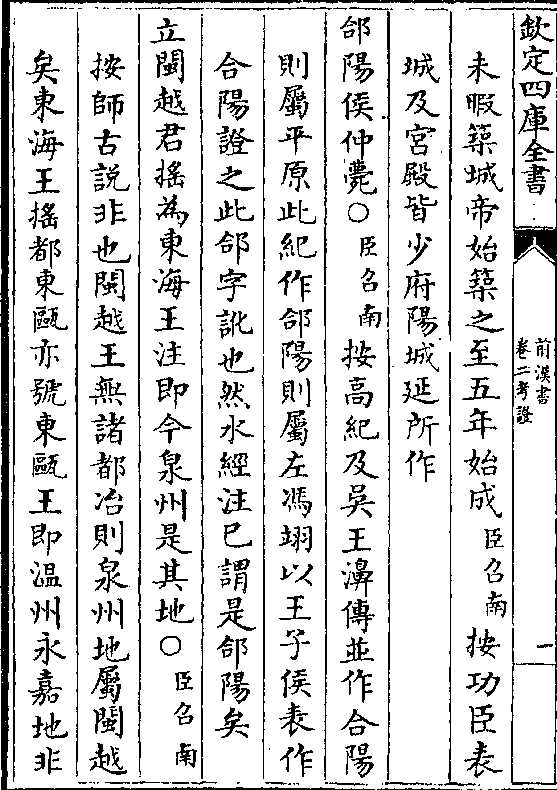 欽定四庫全書
前漢書
卷二考證
一
未暇築城帝始築之至五年始成臣召南按功臣表
城及宮殿皆少府陽城延所作
郃陽侯仲薨〇臣召南按高紀及吳王濞傳並作合陽
則屬平原此紀作郃陽則屬左馮翊以王子侯表作
合陽證之此郃字訛也然水經注已謂是郃陽矣
立閩越君搖為東海王注即今泉州是其地〇臣召南
按師古説非也閩越王無諸都冶則泉州地屬閩越
矣東海王搖都東甌亦號東甌王即温州永嘉地非